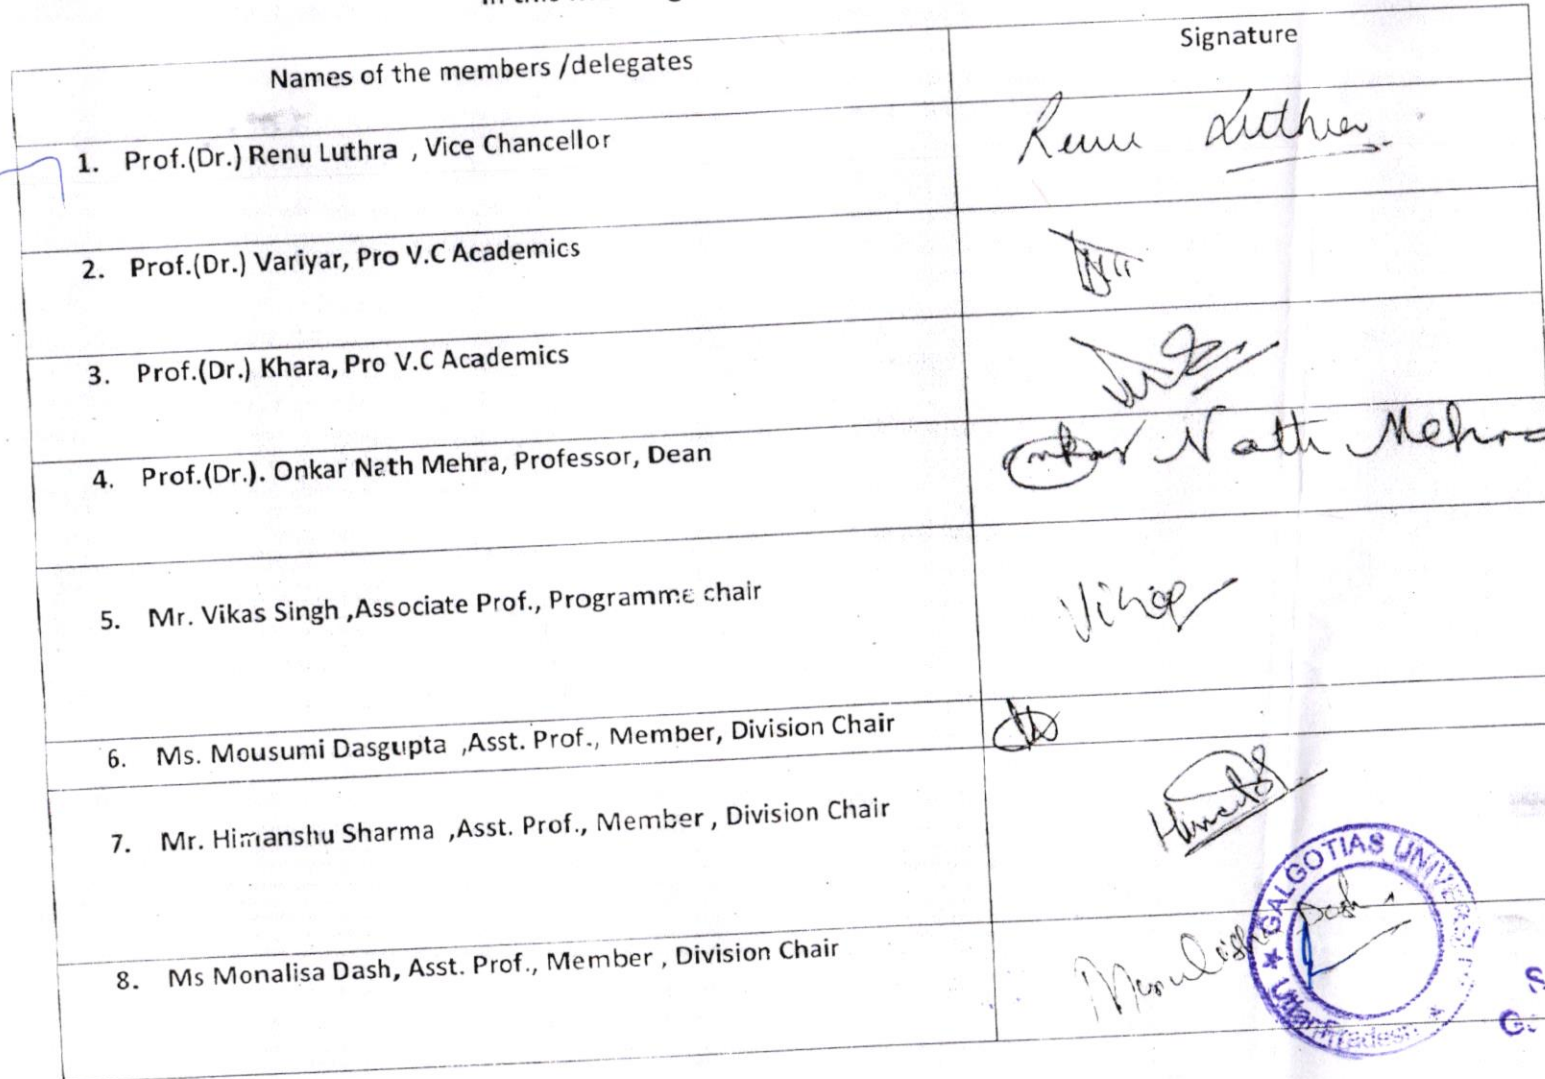 Names of the members /delegates Signature
1. Prof.(Dr.) Renu Luthra , Vice Chancellor Renu Luthra
2. Prof.(Dr.) Variyar, Pro V.C Academics
3. Prof.(Dr.) Khara, Pro V.C Academics
4. Prof.(Dr.). Onkar Nath Mehra, Professor, Dean Onkar Nath Mehra
5. Mr. Vikas Singh ,Associate Prof., Programme chair Vikas
6. Ms. Mousumi Dasgupta ,Asst. Prof., Member, Division Chair
7. Mr. Himanshu Sharma ,Asst. Prof., Member , Division Chair
8. Ms Monalisa Dash, Asst. Prof., Member , Division Chair Monalisha Dash
GALGOTIAS UNIVERSITY
Uttar Pradesh